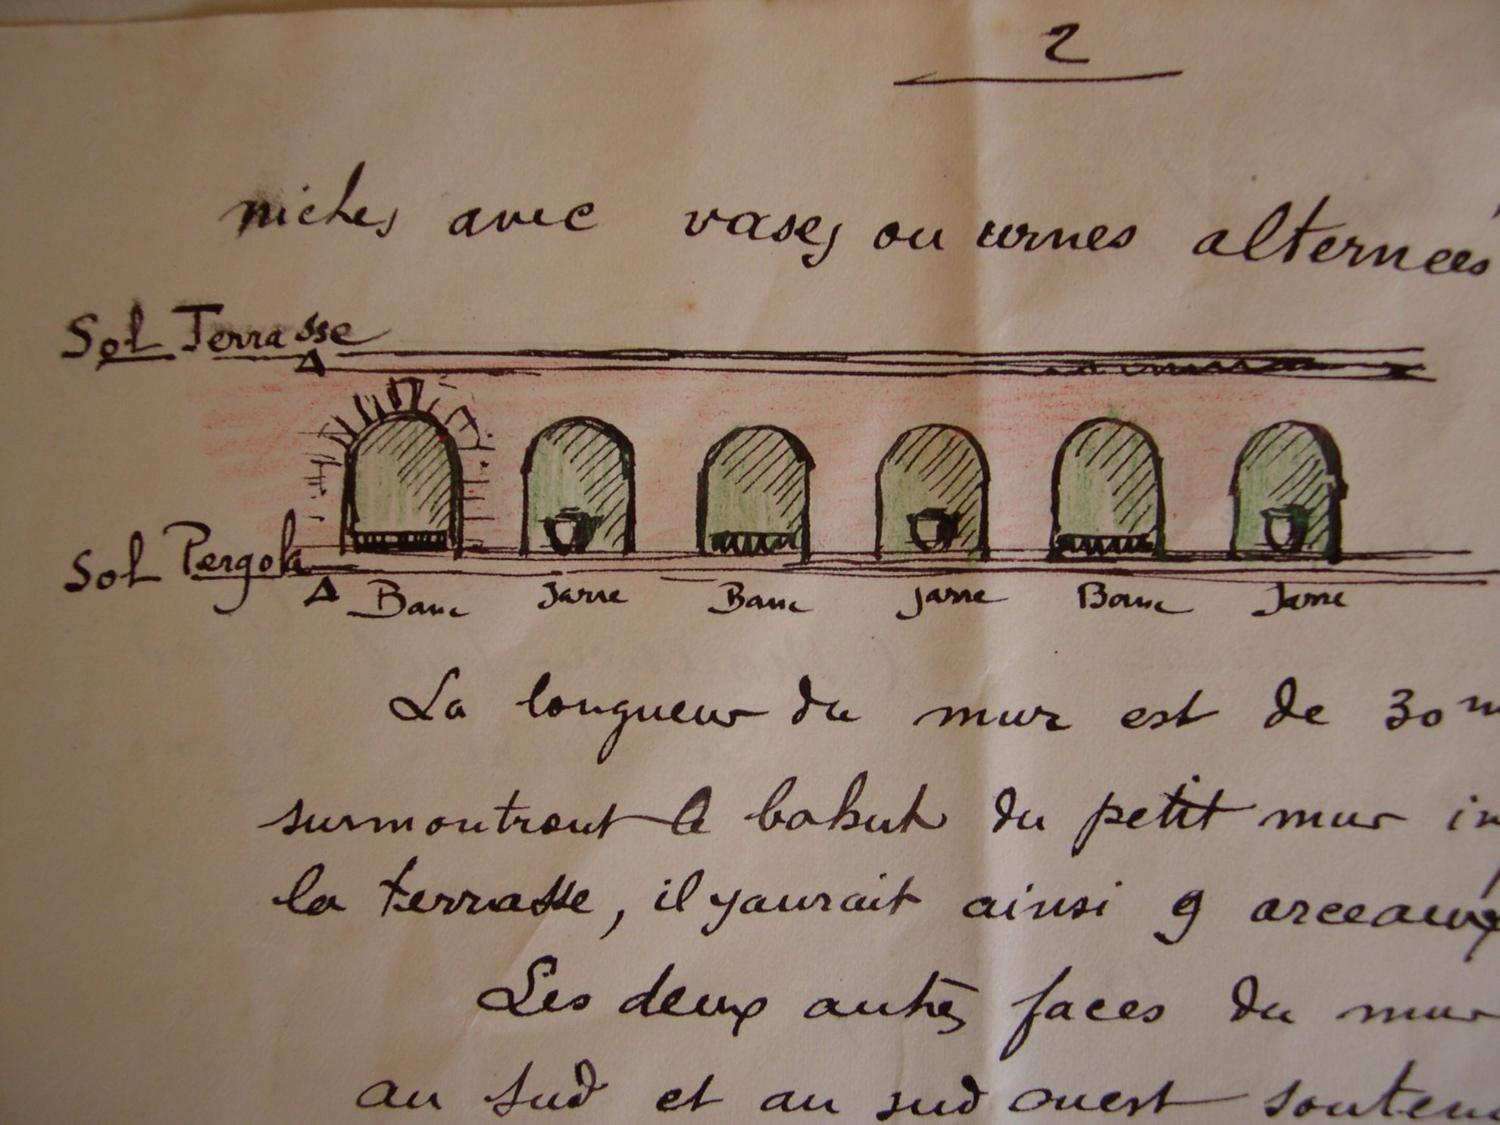 2
niches avec vases ou urnes alternées
Sol Terrasse
Sol Pergola
Banc Jarre Banc Jarre Banc Jarre
La longueur du mur est de 30 m
surmontront le bahut du petit mur
la terrasse, il y aurait ainsi 9 arceaux
Les deux autres faces du mur
au sud et au sud ouest souten